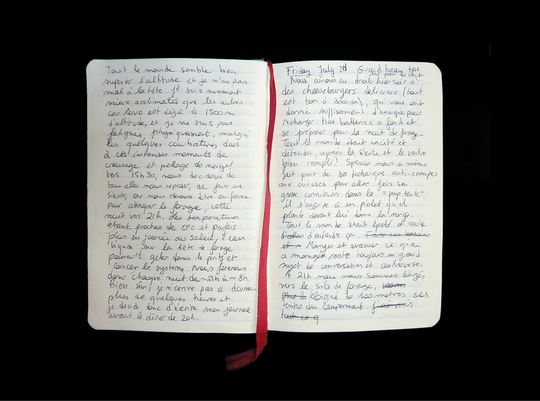 Tout le monde semble bien
supporter l'altitude et je n'ai pas
mal à la tête. Je suis sûrement
mieux acclimatée que les autres
car Reno est déjà à 1500m
d'altitude, et je ne suis pas
fatiguée, physiquement, malgré
les quelques courbatures dues
à ces intenses moments de
creusage et pelletage de neige!
Vers 15h30, nous décidons de
tous aller nous reposer, de faire une
sieste, car nous devons être en forme
pour attaquer le forage, cette
nuit vers 21h. Les températures
étant proches de 0°C et parfois
plus en journée au soleil, l'eau
liquide sur la tête de forage
pourrait geler dans le puits et
coincer le système. Nous forerons
donc chaque nuit de ~21h à ~8h.
Bien sûr, je n'arrive pas à dormir
plus de quelques heures et
je décide donc d'écrire mon journal
avant le dîner de 20h.
Friday July 3rd
Nous avons eu droit hier soir à
des cheeseburgers délicieux (tout
est bon à 3000m), qui nous ont
donné suffisamment d'énergie pour
recharger nos batteries à fond et
se préparer pour la nuit de forage.
Tout le monde était excité et
détendu, après la sieste et le ventre
bien rempli!
fait part de sa technique anti-crampes
aux cuisses pour aller faire sa
grosse commission dans la
il s'agirait d'un piolet qu'il
plante devant lui
Tout le monde était
Manger et
a mangé reste toujours un grand
sujet de conversation
A 21h nous nous sommes dirigés
vers le site de forage,
éloigné de 100 mètres des
tentes du campement